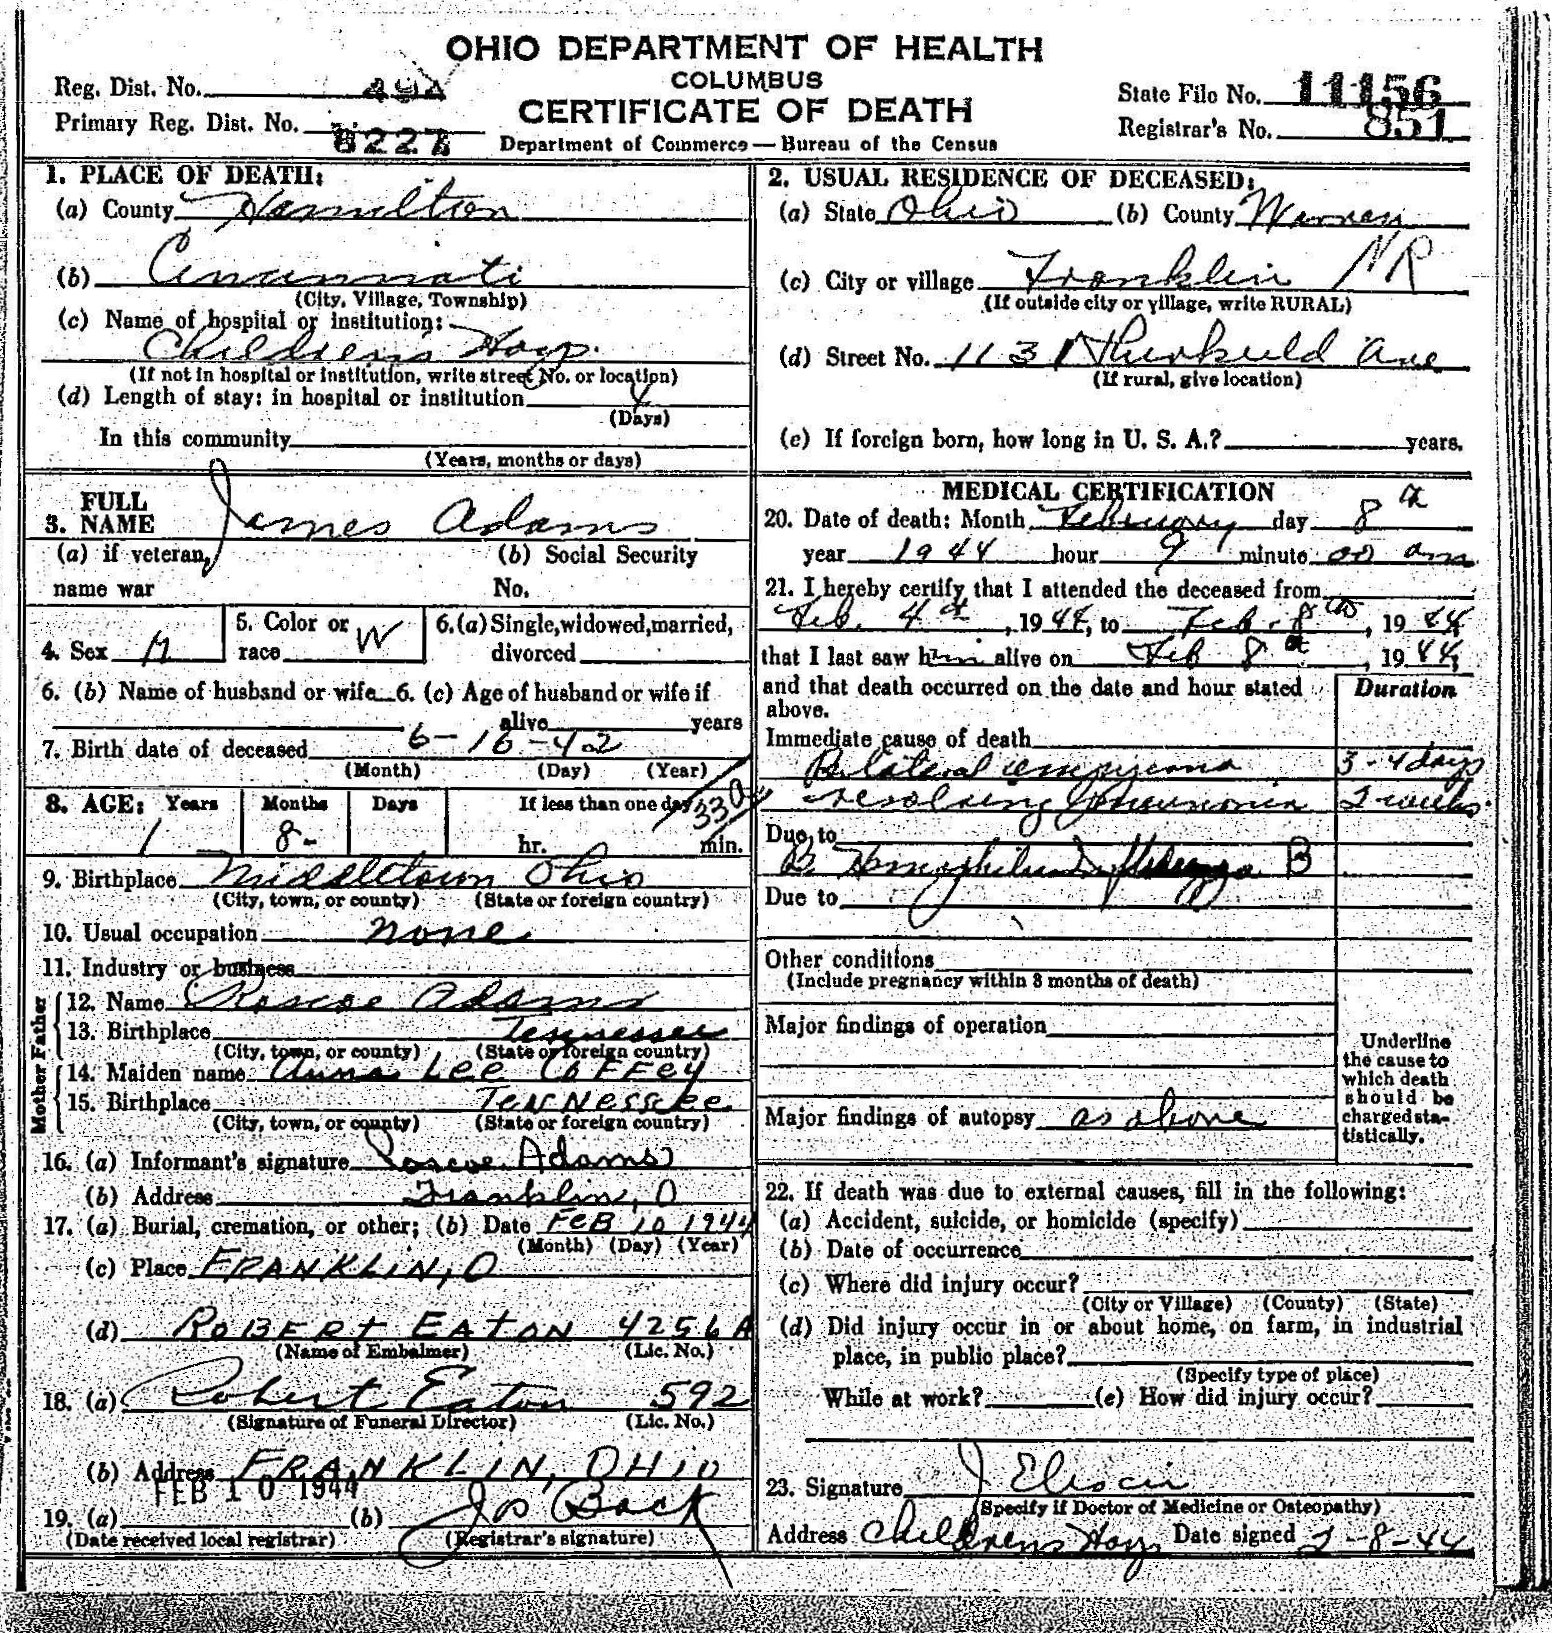 OHIO DEPARTMENT OF HEALTH
COLUMBUS
CERTIFICATE OF DEATH
Department of Commerce — Bureau of the Census
Reg. Dist. No. 494
Primary Reg. Dist. No. 8227
State File No. 11156
Registrar's No. 851
1. PLACE OF DEATH:
(a) County Hamilton
(b) Cincinnati
(City, Village, Township)
(c) Name of hospital or institution:
Children's Hosp.
(If not in hospital or institution, write street No. or location)
(d) Length of stay: in hospital or institution 4
(Days)
In this community
(Years, months or days)
2. USUAL RESIDENCE OF DECEASED:
(a) State Ohio (b) County Warren
(c) City or village Franklin NR
(If outside city or village, write RURAL)
(d) Street No. 1131 Ave
(If rural, give location)
(e) If foreign born, how long in U. S. A.? years.
3. FULL NAME James Adams
(a) if veteran, name war
(b) Social Security No.
4. Sex M
5. Color or race W
6. (a) Single, widowed, married, divorced
6. (b) Name of husband or wife
6. (c) Age of husband or wife if alive years
7. Birth date of deceased 6-16-42
(Month) (Day) (Year)
8. AGE: Years Months Days If less than one day
1 8- hr. min.
330
9. Birthplace Middletown Ohio
(City, town, or county) (State or foreign country)
10. Usual occupation none
11. Industry or business
Father
12. Name Roscoe Adams
13. Birthplace Tennessee
(City, town, or county) (State or foreign country)
Mother
14. Maiden name Anna Lee Coffey
15. Birthplace Tennessee
(City, town, or county) (State or foreign country)
16. (a) Informant's signature Roscoe Adams
(b) Address Franklin, O
17. (a) Burial, cremation, or other; (b) Date FEB 10 1944
(Month) (Day) (Year)
(c) Place FRANKLIN, O
(d) ROBERT EATON 4256A
(Name of Embalmer) (Lic. No.)
18. (a) Robert Eaton 592
(Signature of Funeral Director) (Lic. No.)
(b) Address FRANKLIN, OHIO
FEB 10 1944
19. (a) (b) Jos Back
(Date received local registrar) (Registrar's signature)
MEDICAL CERTIFICATION
20. Date of death: Month February day 8th
year 1944 hour 9 minute 00 am
21. I hereby certify that I attended the deceased from
Feb. 4th, 1944, to Feb. 8th, 1944,
that I last saw him alive on Feb 8th, 1944,
and that death occurred on the date and hour stated above.
Duration
Immediate cause of death
Bilateral empyema 3-4 days
resolving pneumonia 2 weeks.
Due to
B. Hemophilus Influenza B
Due to
Other conditions
(Include pregnancy within 3 months of death)
Major findings of operation
Major findings of autopsy as above
Underline the cause to which death should be charged statistically.
22. If death was due to external causes, fill in the following:
(a) Accident, suicide, or homicide (specify)
(b) Date of occurrence
(c) Where did injury occur?
(City or Village) (County) (State)
(d) Did injury occur in or about home, on farm, in industrial
place, in public place?
(Specify type of place)
While at work? (e) How did injury occur?
23. Signature J
(Specify if Doctor of Medicine or Osteopathy)
Address Childrens Hosp Date signed 2-8-44